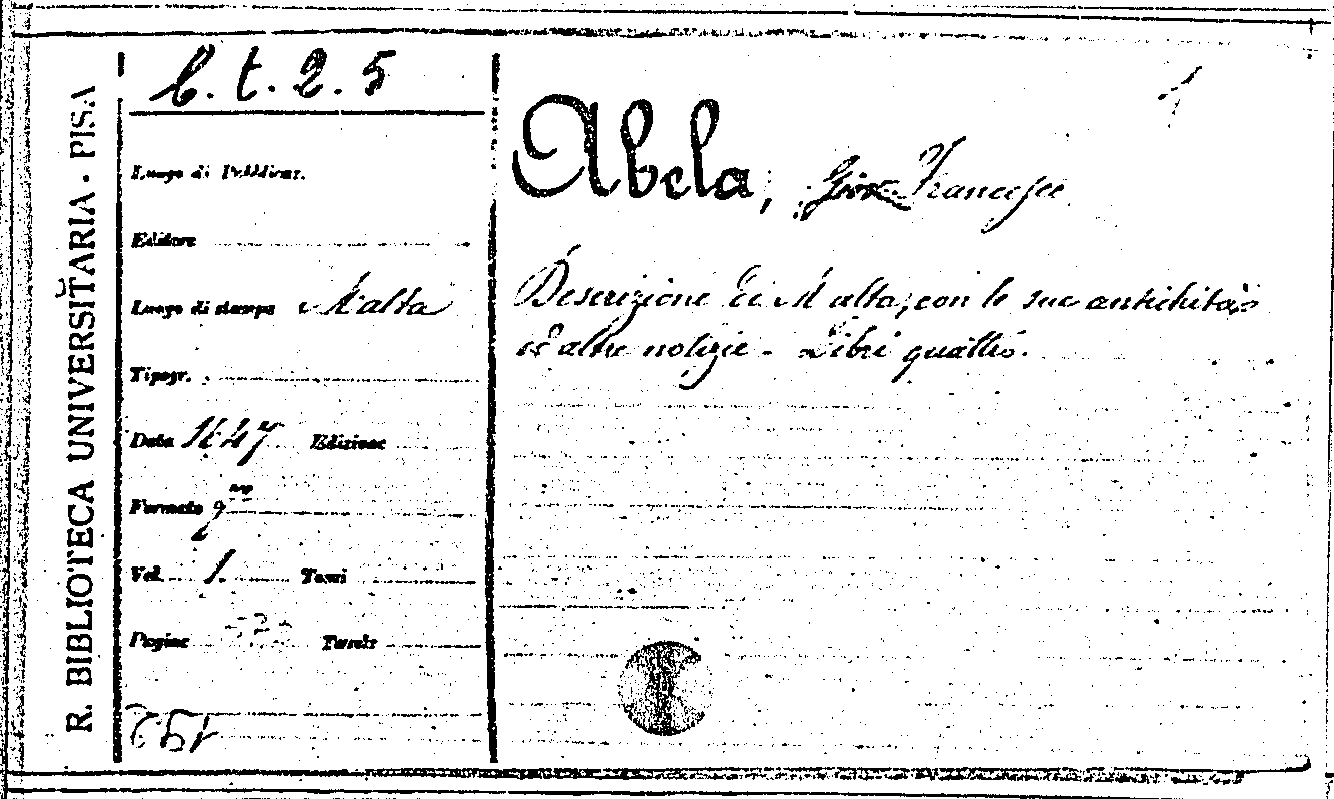 R. BIBLIOTECA UNIVERSITARIA - PISA
C. t. 2. 5
Luogo di Pubblicaz.
Editore
Luogo di stampa Malta
Tipogr.
Data 1647 Edizione
Formato
Vol. 1. Tomi
Pagine Tavole
Abela, Giov. Francesco
Descrizione di Malta, con le sue antichità,
ed altre notizie - Libri quattro.